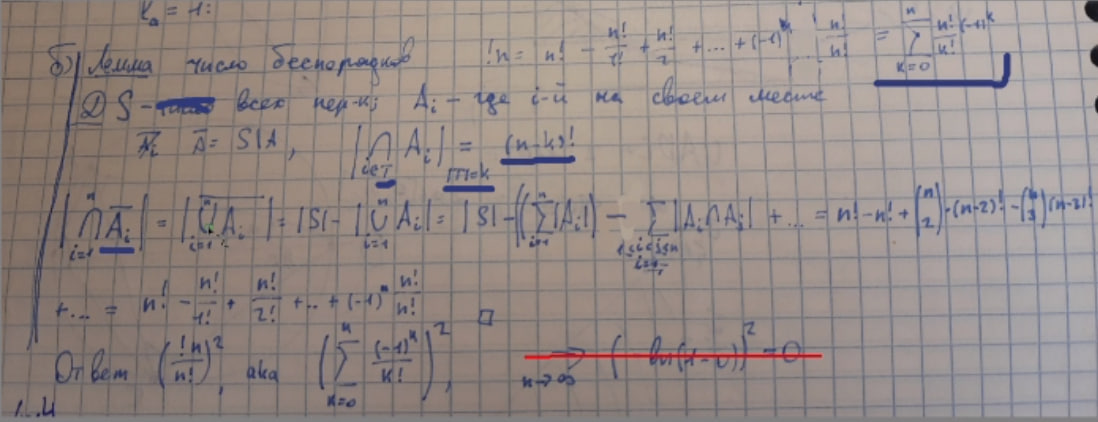 k_a = 1:
б) Лемма число беспорядков !n = n! - n!/1! + n!/2 + ... + (-1)^n n!/n! = ∑_{k=0}^{n} n!/k! (-1)^k
Д S - всех пер-к; A_i - где i-й на своем месте
Ā = S\A, |⋂_{i∈T} A_i| = (n-k)! |T|=k
|⋂_{i=1}^{n} Ā_i| = |\overline{⋃_{i=1}^{n} A_i}| = |S| - |⋃_{i=1}^{n} A_i| = |S| - ((∑_{i=1}^{n} |A_i|) - ∑_{1≤i<j≤n} |A_i ∩ A_j| + ... = n! - n! + (n 2)·(n-2)! - (n 3)(n-3)!
+... = n! - n!/1! + n!/2! + ... + (-1)^n n!/n! □
Ответ (!n/n!)^2, aka (∑_{k=0}^{n} (-1)^k/k!)^2, ⟹_{n→∞} (-ln(1-0))^2 = 0